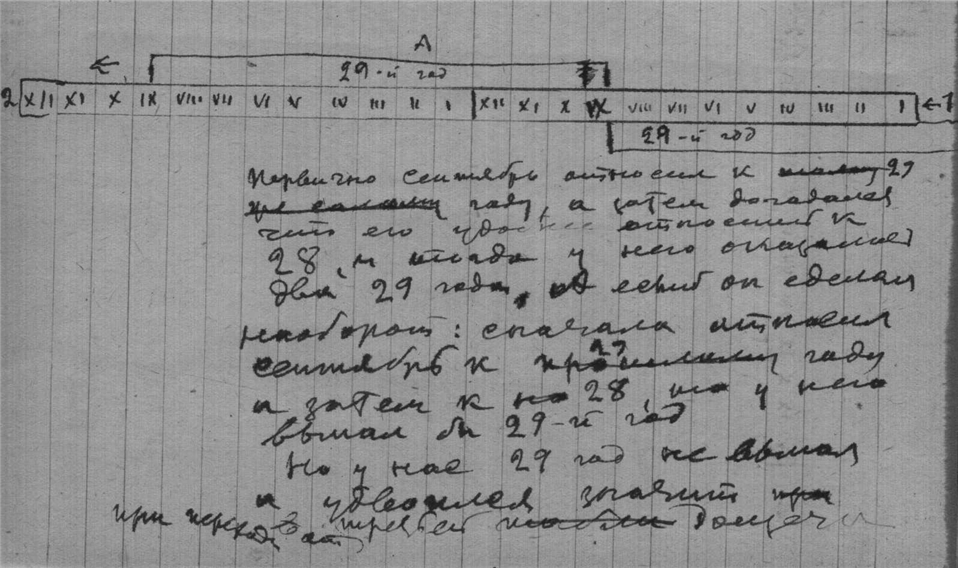 A
← 29-й год
2 XII XI X IX VIII VII VI V IV III II I XII XI X IX VIII VII VI V IV III II I ←1
29-й год
Первично сентябрь относил к 29
же самому году, а затем догадался
что его относит к
28, и тогда у него оказалось
два 29 года, если б он сделал
наоборот: сначала относил
сентябрь к 29 году
а затем к 28, то у него
выпал бы 29-й год
Но у нас 29 год не выпал
а удвоился значит при
при переходе